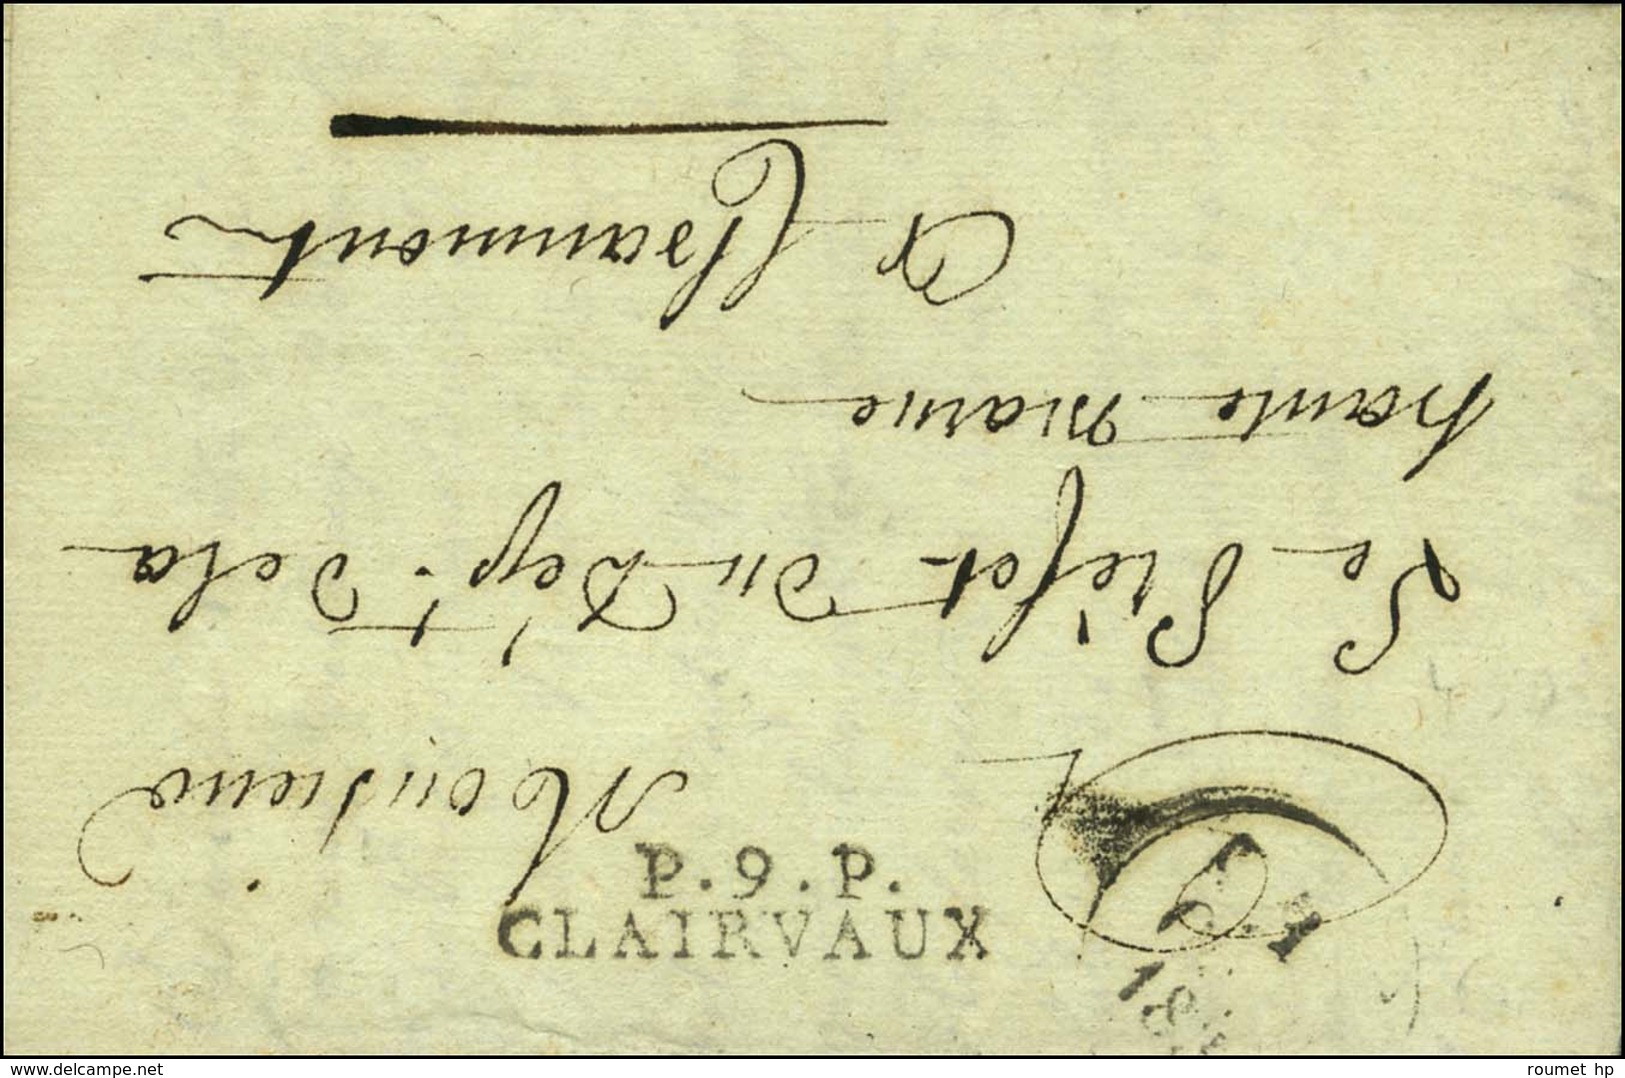 Monsieur
Le Préfet du Dépt. dela
haute marne
A Chaumont
P.9.P.
CLAIRVAUX
www.delcampe.net
roumet hp